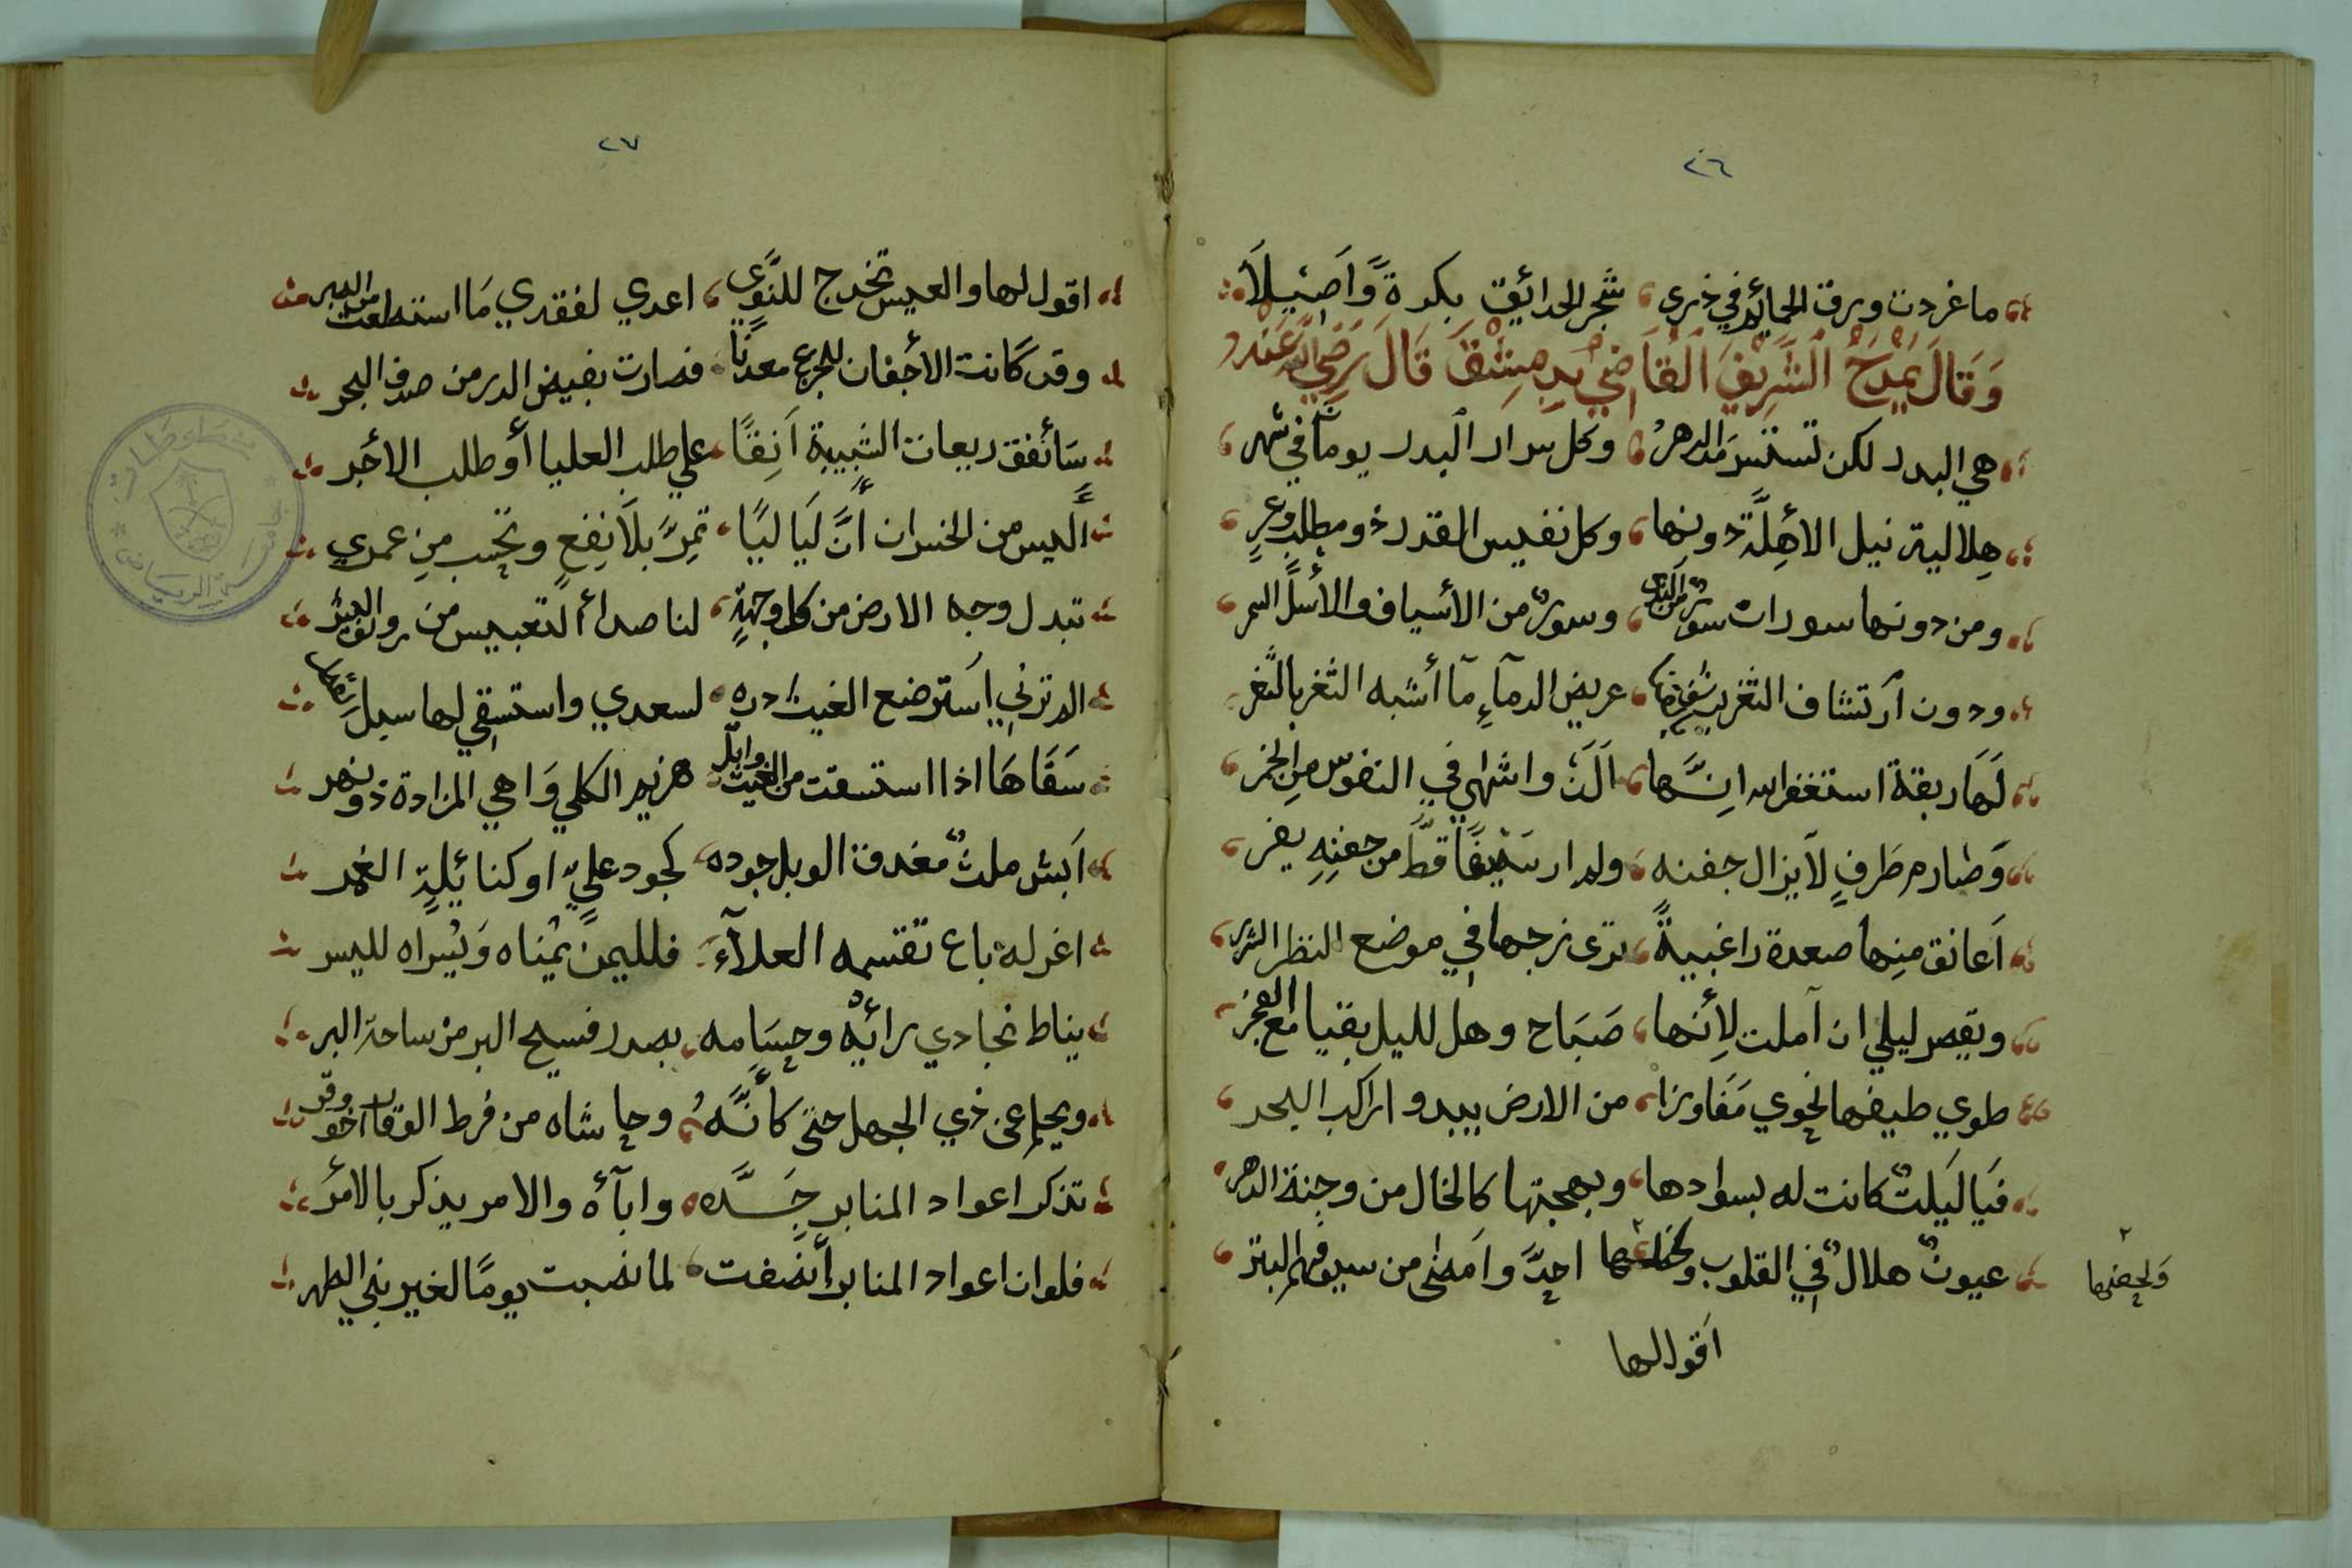 ٢٦
ما غردت ورق الحمائم في ذرى شجر الحدائق بكرةً وَّاَصِيْلَا
وَقَالَ يَمْدَحُ الشَّرِيْفَ الْقَاضِيْ بِدِمِشْقَ قَالَ رَضِيَ اللّٰه عَنْهُ
هي البدر لكن تستسرّ مدَالدهرُ وكل سرار البدر يومان في شهر
هِلالية نيل الأهِلَّة دونها وكل نفيس القدر ذو مطلب وعرِ
ومن دونها سورات سورٌ من القنا وسورٌ من الأسياف والأسل السمر
ودون ارتشاف الثغر عريض الدمآءِ مآ أشبه الثغر بالثغر
لَهَا ريقة استغفر الله انِّها اَلَذّ واشهٰي في النفوس مِن الخمر
وَصارم طَرفٍ لَا يزال جفنه ولم ار سَيْفًا قطُّ من جفنِهِ يفر
اَعانق مِنها صعدة زاغبيةً ترى زجها في موضع النظر الشزر
ويقصر ليلي ان آملت لِأنها صَبَاح وهل لليل بقيا مع الفجر
طوي طيفها نحوي مَفَاوزا من الارض بيدو اراكب البحر
فَيا لَيلت كانت له بسوادها وبهجتها كالخال من وجنة الدهر
عيونٌ هلالٌ في القلوب احدَّ وامضٰى من سيوفهم البتر
وَلحضها
اَقول لها
٢٧
اقول لها والعيس تخدج للنَّوٰي اعدي لفقدي مَا استطعت من الصبر
وقد كَانت الأجفان للجزع معدنًا فصارت بفيض الدر من صدف البحر
سَأنفق ريعان الشبيبة اَنِفًا علي طلب العليا أو طلب الأجر
أَليس من الخسران أنَّ لَيَاليًا تمرّ بلَا نِفعٍ وتحسب مِن عمري
تبدل وجه الارض من كل وجهةٍ لنا صدأ التعبيس من رونق البشر
الم ترني اَسترضع الغيث دره لسعدي واستسقي لها سبل
سَقَاهَا اذا استسقت من الغيث وابل هزيم الكلي وَاهي المزادة ذو نهر
اَبش ملثٌ مغدق الوبل جوده كجود عليّ او كنائيلة الغمر
اغر له باع تقسمه العلآءِ فلليمن يُمْناه وَيُسراه لليسر
يناط نجادي رائيْه وحسَامه بصدر فسيح البر من ساحة البر
ويحلم عن ذي الجهل حتى كأنَّهُ وحاشاه من فرط الوقار اخو وقر
تذكر اعواد المنابر جَدَّه وابآؤه والامر يذكر بالامر
فلو ان اعواد المنابر أَنصفت لما نصبت يومًا لغير بني الطهر